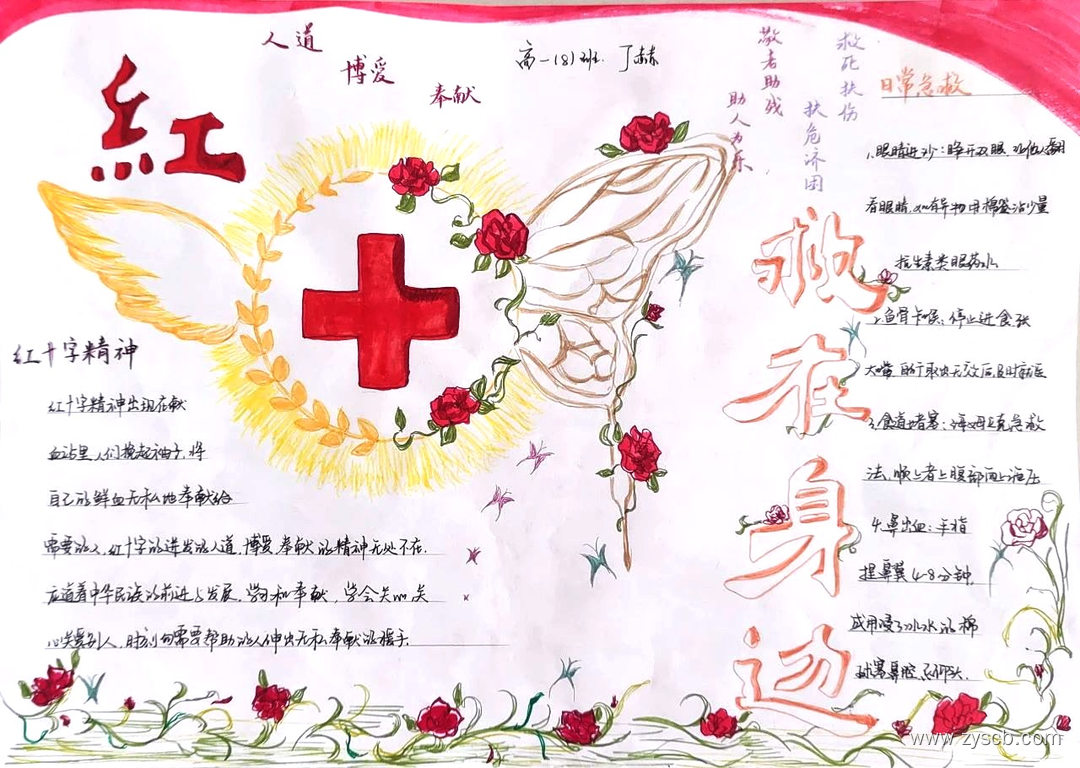 人道
博爱
奉献
高一(8)班 丁赫
敬老助残
助人为乐
救死扶伤
扶危济困
红
救在身边
红十字精神
红十字精神出现在献
血站里人们挽起袖子,将
自己的鲜血无私地奉献给
需要的人,红十字的迸发的人道,博爱,奉献的精神无处不在.
着中华民族的前进与发展,学习和奉献,学会关心,关
心关爱别人,时刻向需要帮助的人伸出无私奉献的援手.
日常急救
1.眼睛进沙:睁开双眼,
看眼睛,如有异物用棉签沾少量
抗生素类眼药水
2.鱼骨卡喉:停止进食,张
大嘴,
3.食道堵塞:海姆立克急救
法,
4.鼻出血:手指
捏鼻翼4-8分钟,
或用浸了冰水的棉
球塞鼻腔
www.zyscb.com